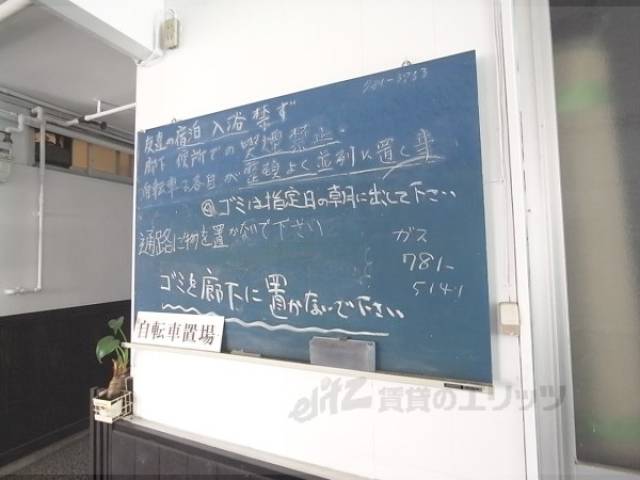 友達の宿泊入浴禁ず
廊下便所での喫煙禁止
自転車は各自が整頓よく並列に置く事
ゴミは指定日の朝に出して下さい
通路に物を置かないで下さい
ガス
781-
5141
ゴミを廊下に置かないで下さい
自転車置場
elitz 賃貸のエリッツ